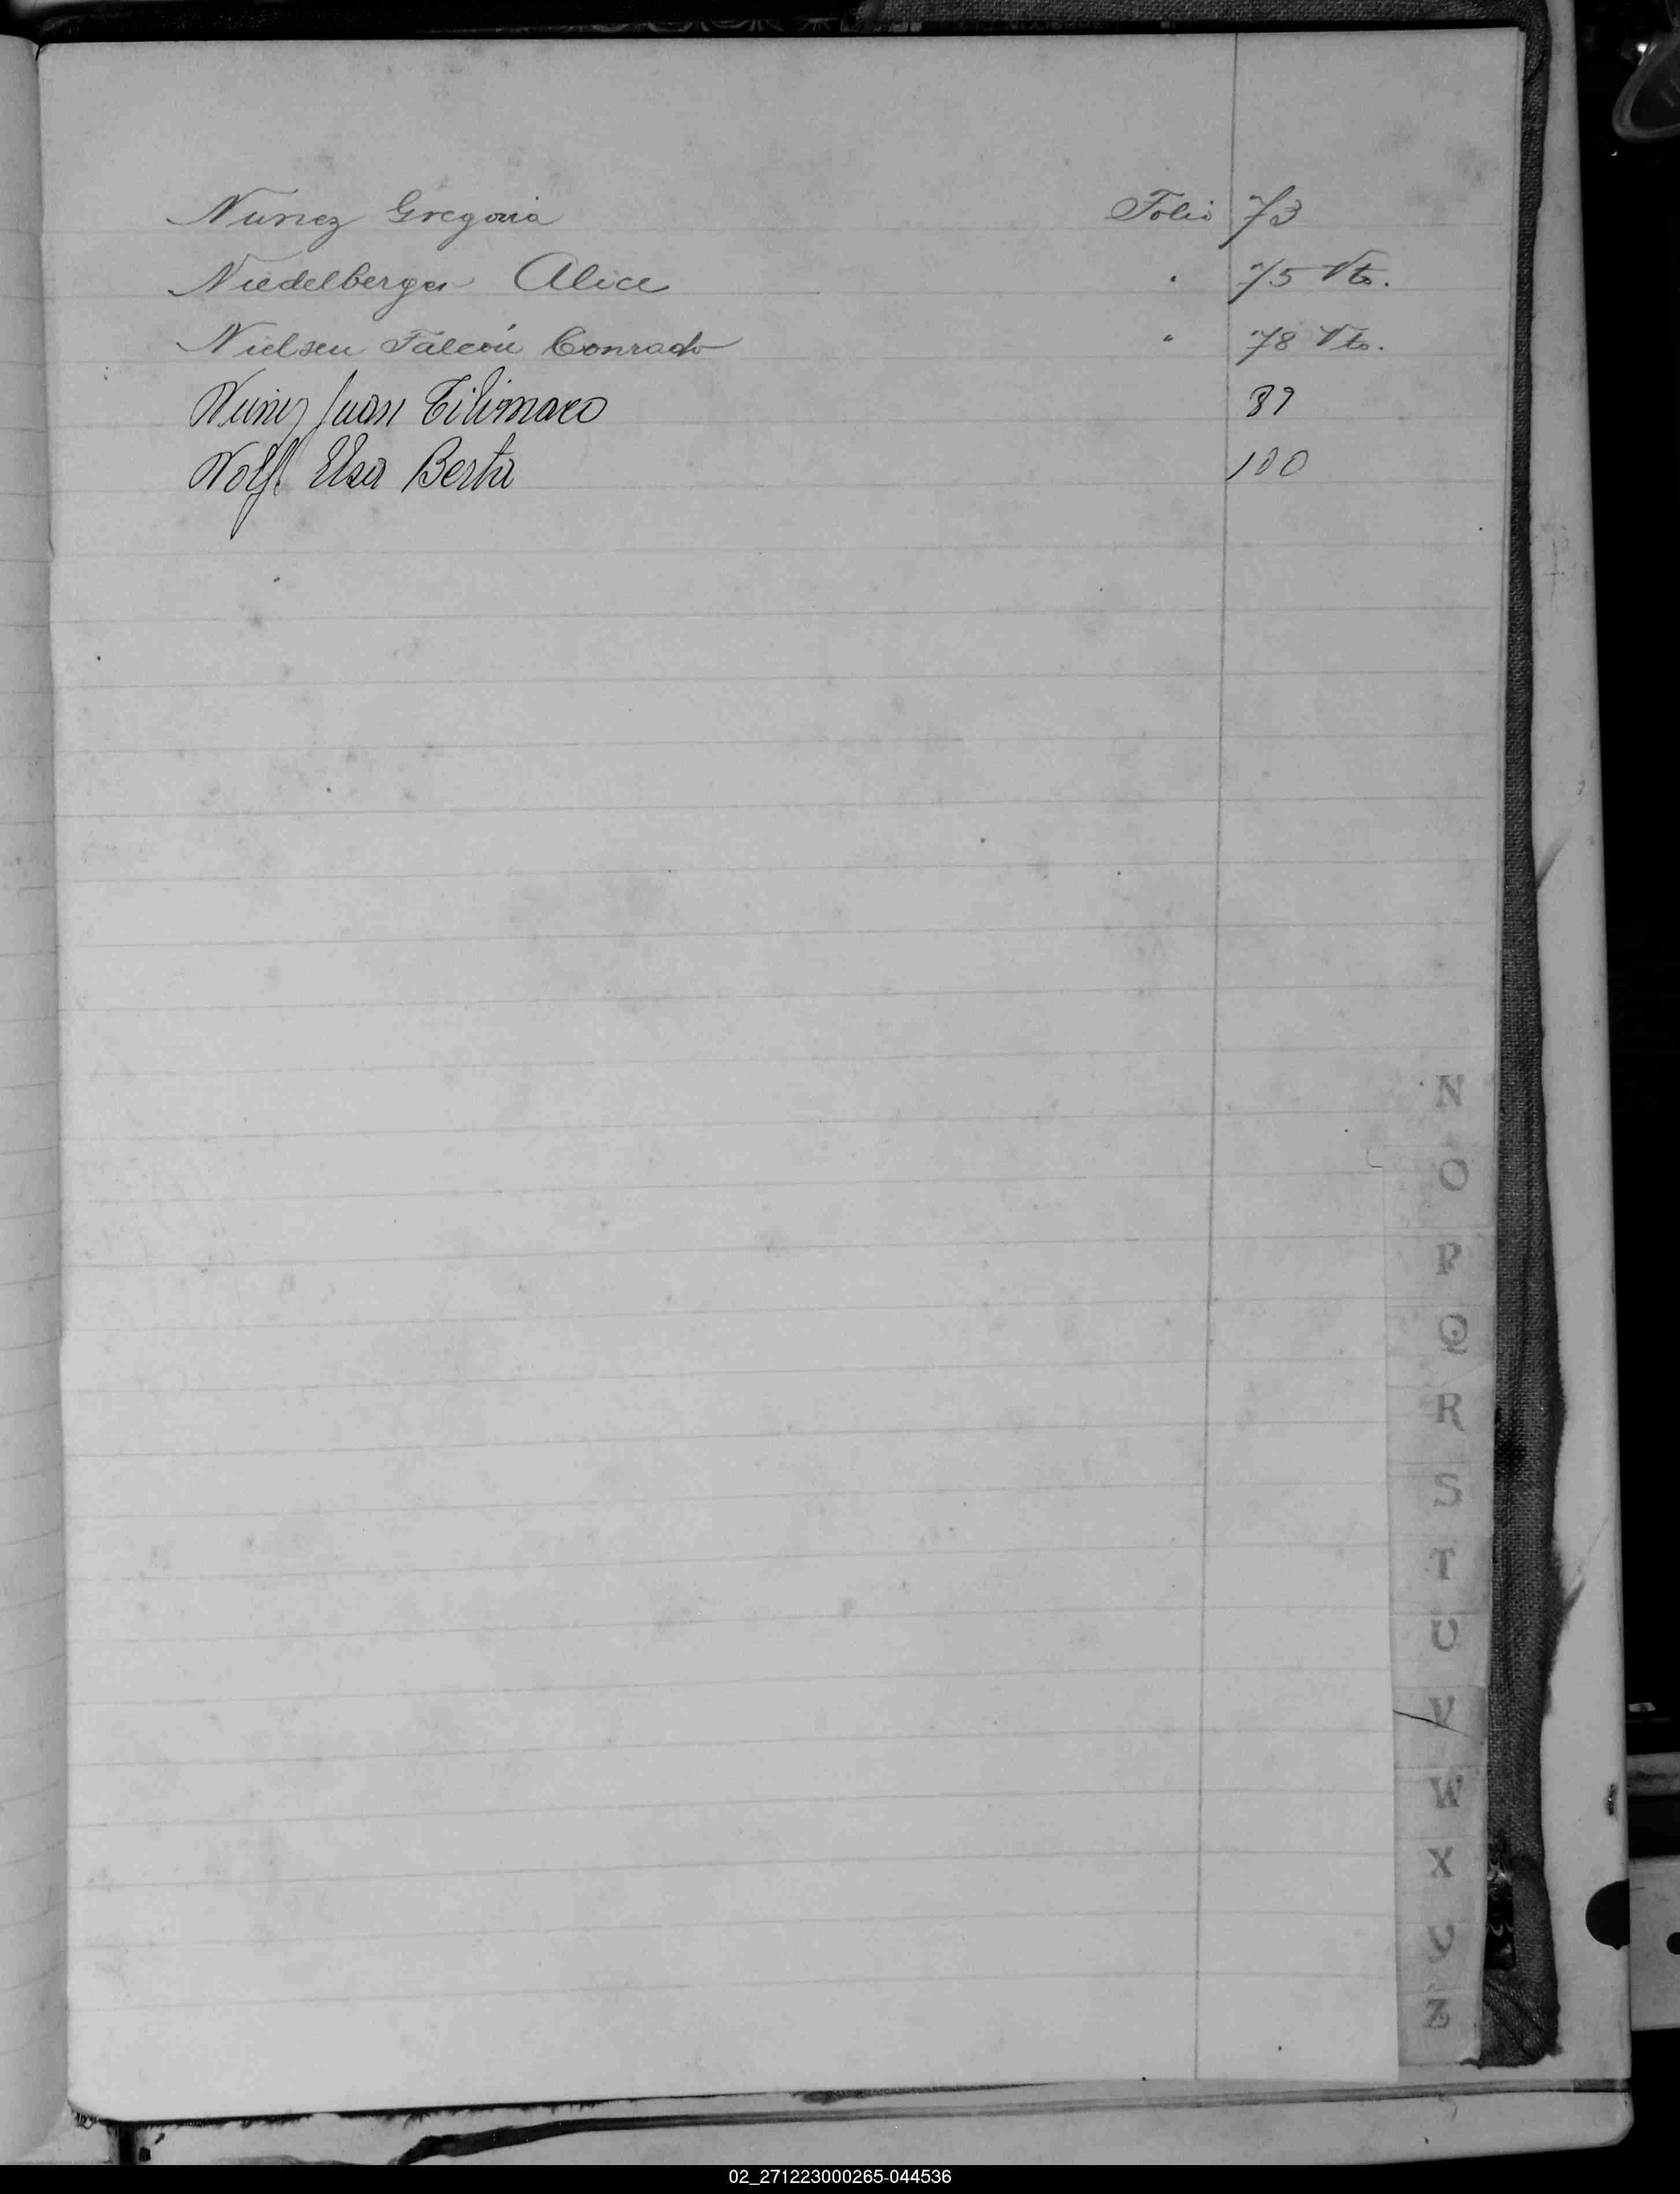 Nunez Gregoria Folio 73
Niedelberger Alice " 75 Vto.
Nielsen Falcón Conrado " 78 Vto.
Nuñez Juan 89
Nolf Elsa Berta 100
N
O
P
Q
R
S
T
U
V
W
X
Y
Z
02_271223000265-044536